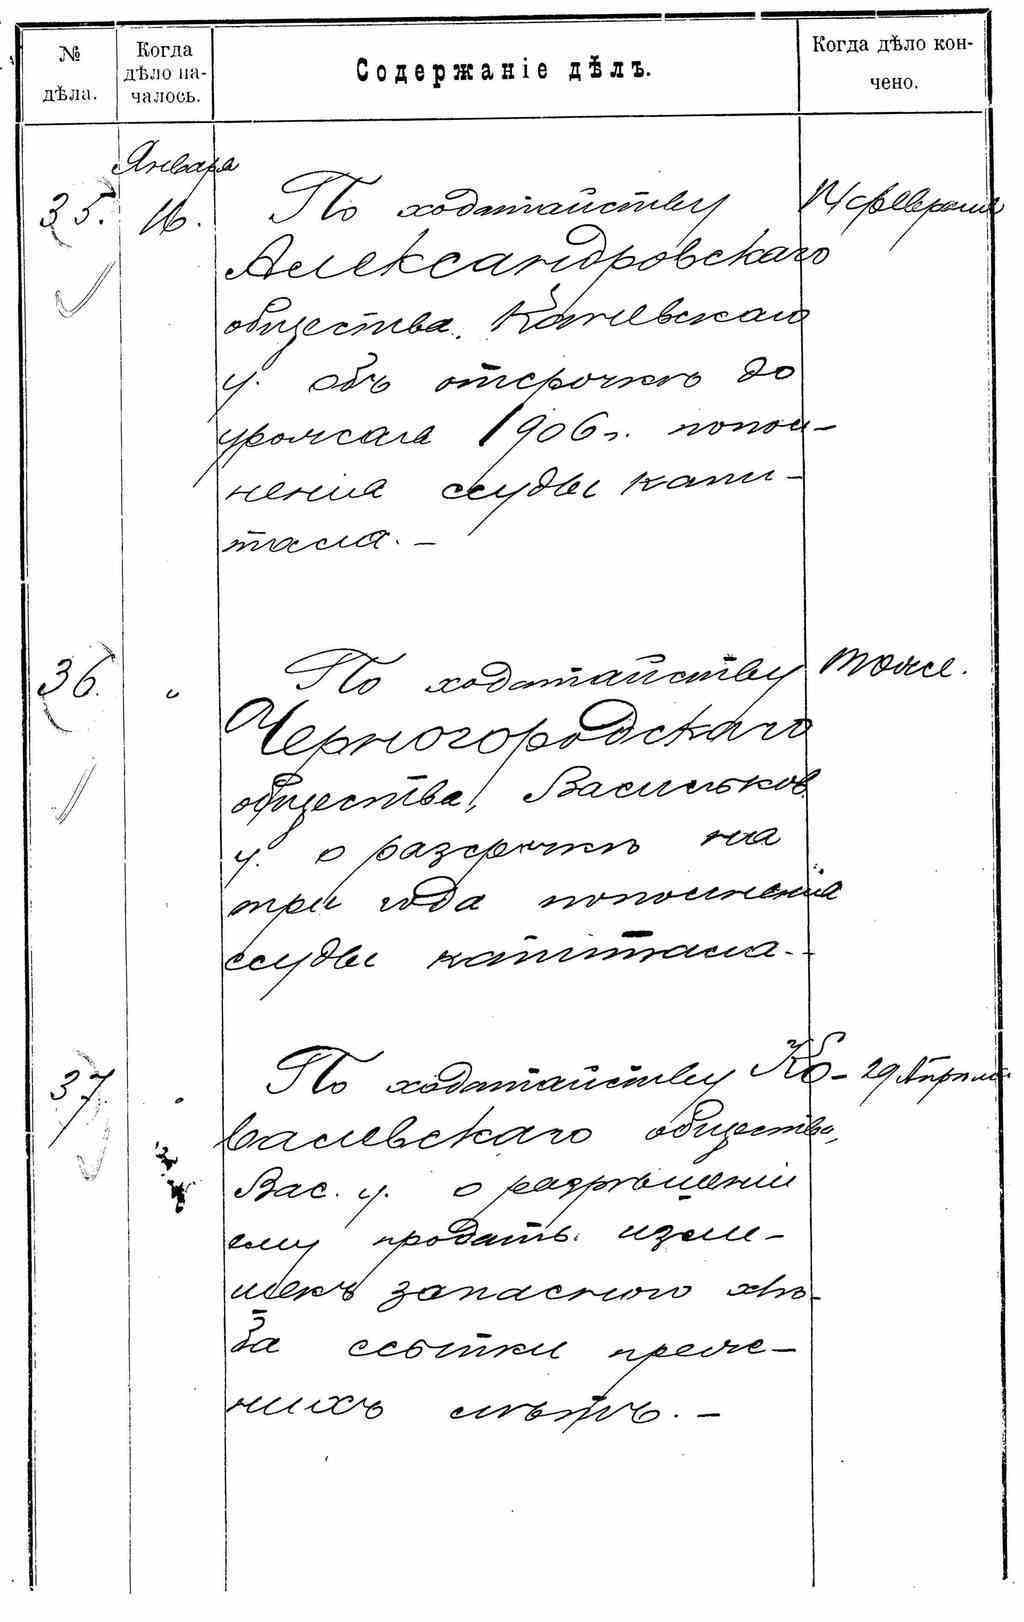 № дѣла.
Когда дѣло началось.
Содержаніе дѣлъ.
Когда дѣло кончено.
Января
35. 16. По ходатайству 14 февраля
Александровскаго
общества, Каневскаго
у. объ отсрочкѣ до
урожая 1906 г. попол-
ненія ссуды капи-
тала. —
36. " По ходатайству тоже.
Черногородскаго
общества, Васильков.
у. о разсрочкѣ на
три года пополненія
ссуды капитала. -
37 " По ходатайству Ко- 29 Апрѣля
валевскаго общества,
Вас. у. о разрѣшеніи
ему продать изли-
шекъ запаснаго хлѣ-
ба ссыпки преж-
нихъ лѣтъ. —